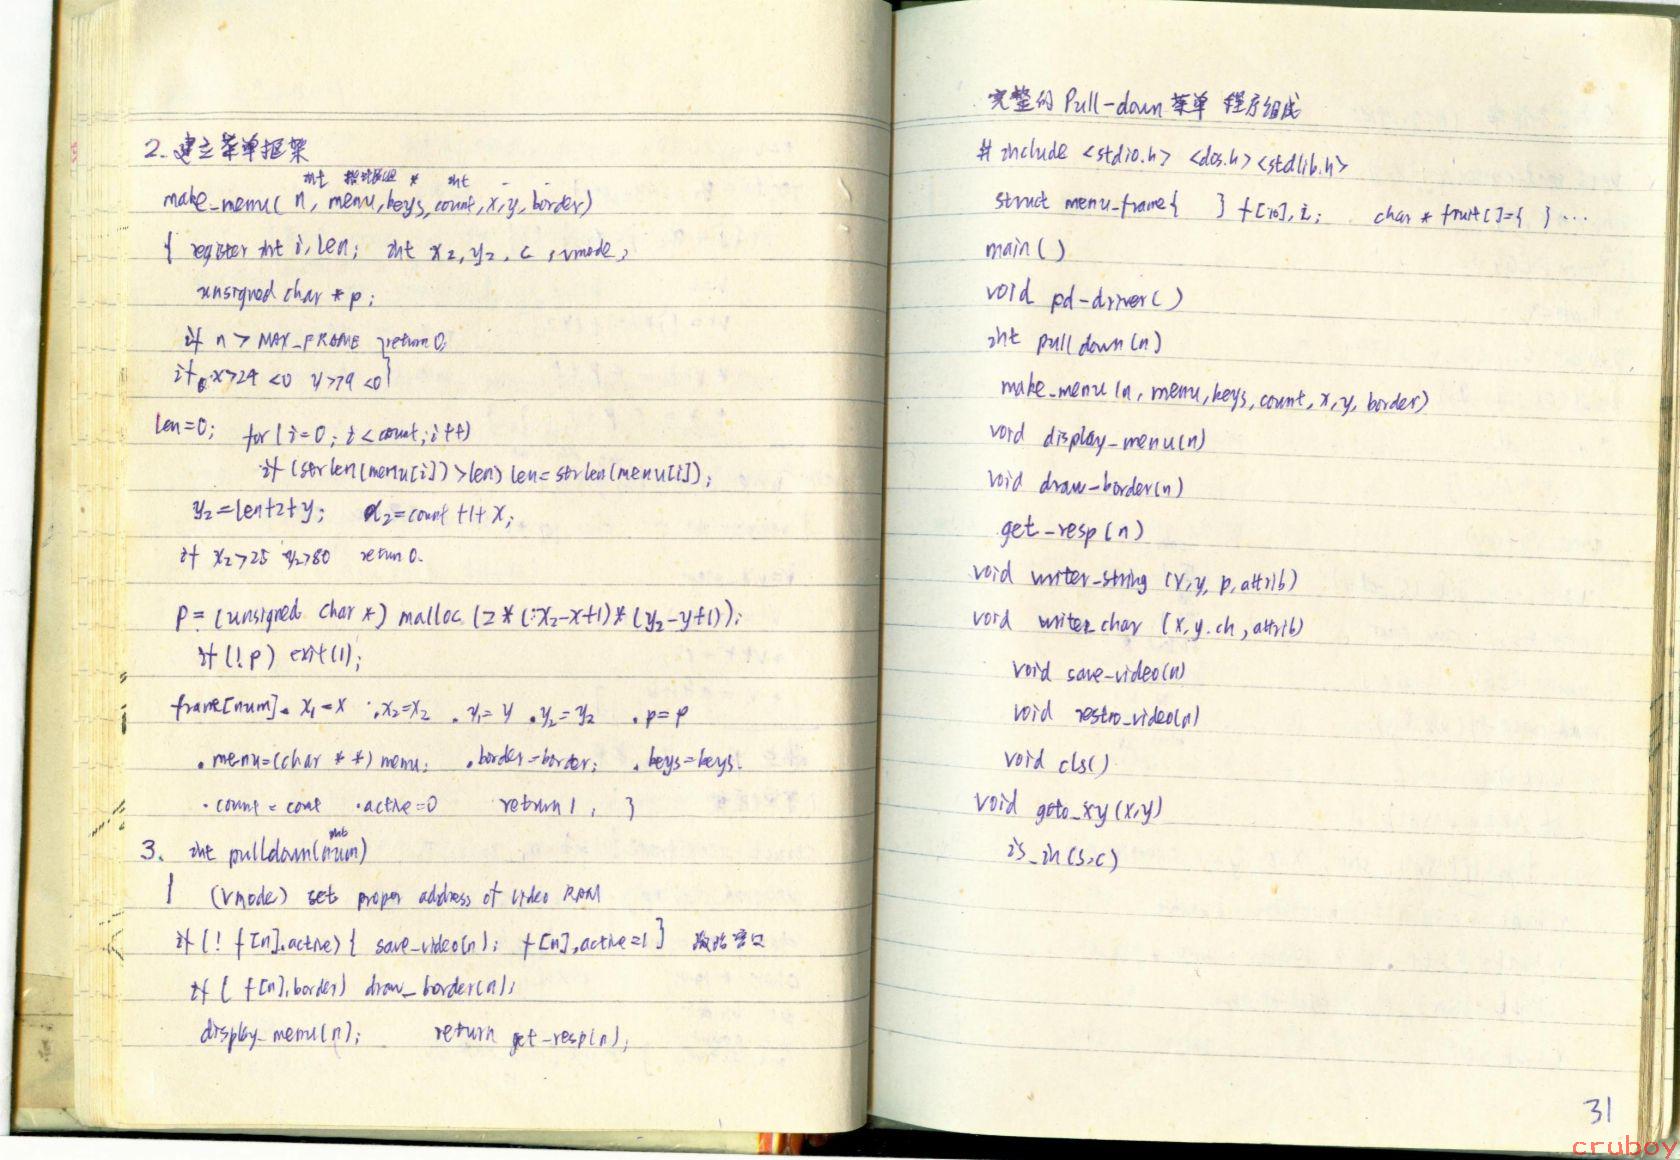 2. 建立菜单框架
int 指针数组 * int
make_menu( n, menu, keys, count, x, y, border)
{ register int i, len; int x2, y2, c, vmode;
unsigned char * p;
if n > MAX_FRAME } return 0;
if x>24 <0 y>79 <0 }
len=0; for(i=0; i<count; i++)
if (strlen(menu[i])>len) len=strlen(menu[i]);
y2=len+2+y; x2=count+1+x;
if x2>25 y2>80 return 0.
p = (unsigned char *) malloc (2*(x2-x+1)*(y2-y+1));
if (!p) exit(1);
frame[num]. x1=x .x2=x2 .y1=y .y2=y2 .p=p
.menu=(char **) menu; .border=border; .keys=keys.
.count = cont .active=0 return 1; }
int
3. int pulldown(num)
{ (vmode) set proper address of video RAM
if (! f[n].active) { save_video(n); f[n].active=1 } 激活窗口
if ( f[n].border) draw_border(n);
display_menu(n); return get-resp(n);
完整的 Pull-down 菜单 程序组成
# include <stdio.h> <dos.h> <stdlib.h>
struct menu-frame{ } f[10], i; char * fruit[]={ } ...
main()
void pd-driver()
int pulldown(n)
make_menu(n, menu, keys, count, x, y, border)
void display_menu(n)
void draw-border(n)
get-resp(n)
void writer-string (x, y, p, attrib)
void writer_char (x, y. ch, attrib)
void save-video(n)
void restro_video(n)
void cls()
void goto_xy(x,y)
is_in(s,c)
31
cruboy